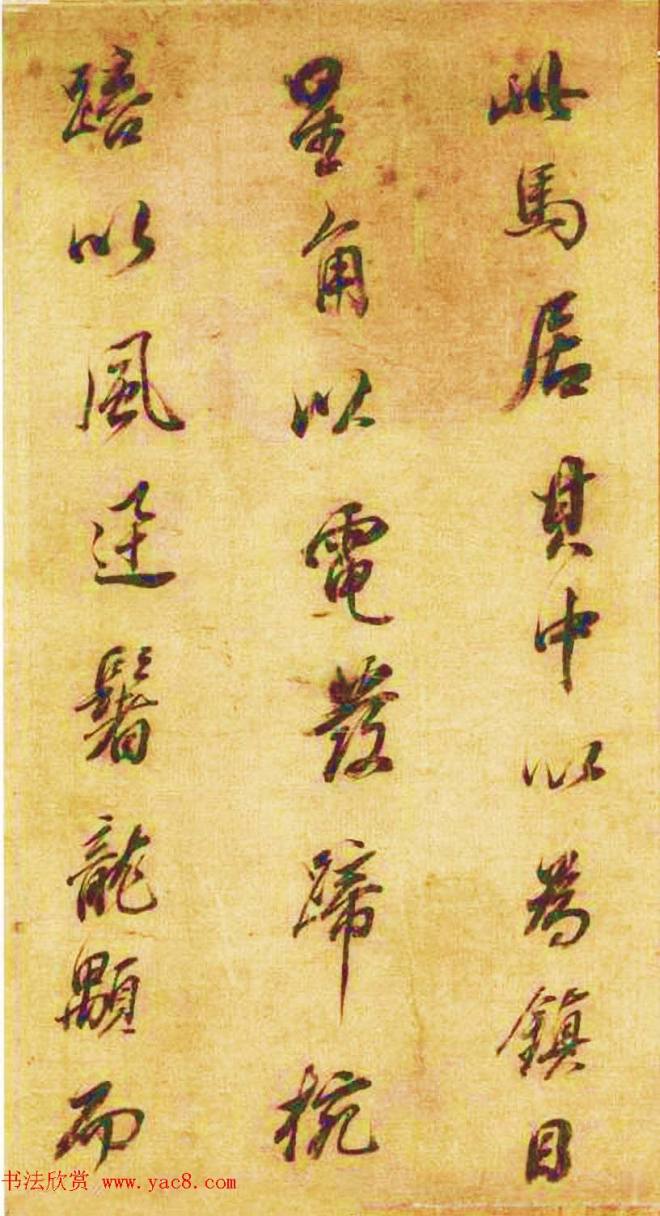 此馬居其中以為鎮目
星角以電發蹄椀
踣以風迅鬐龍顒而
书法欣赏 www.yac8.com